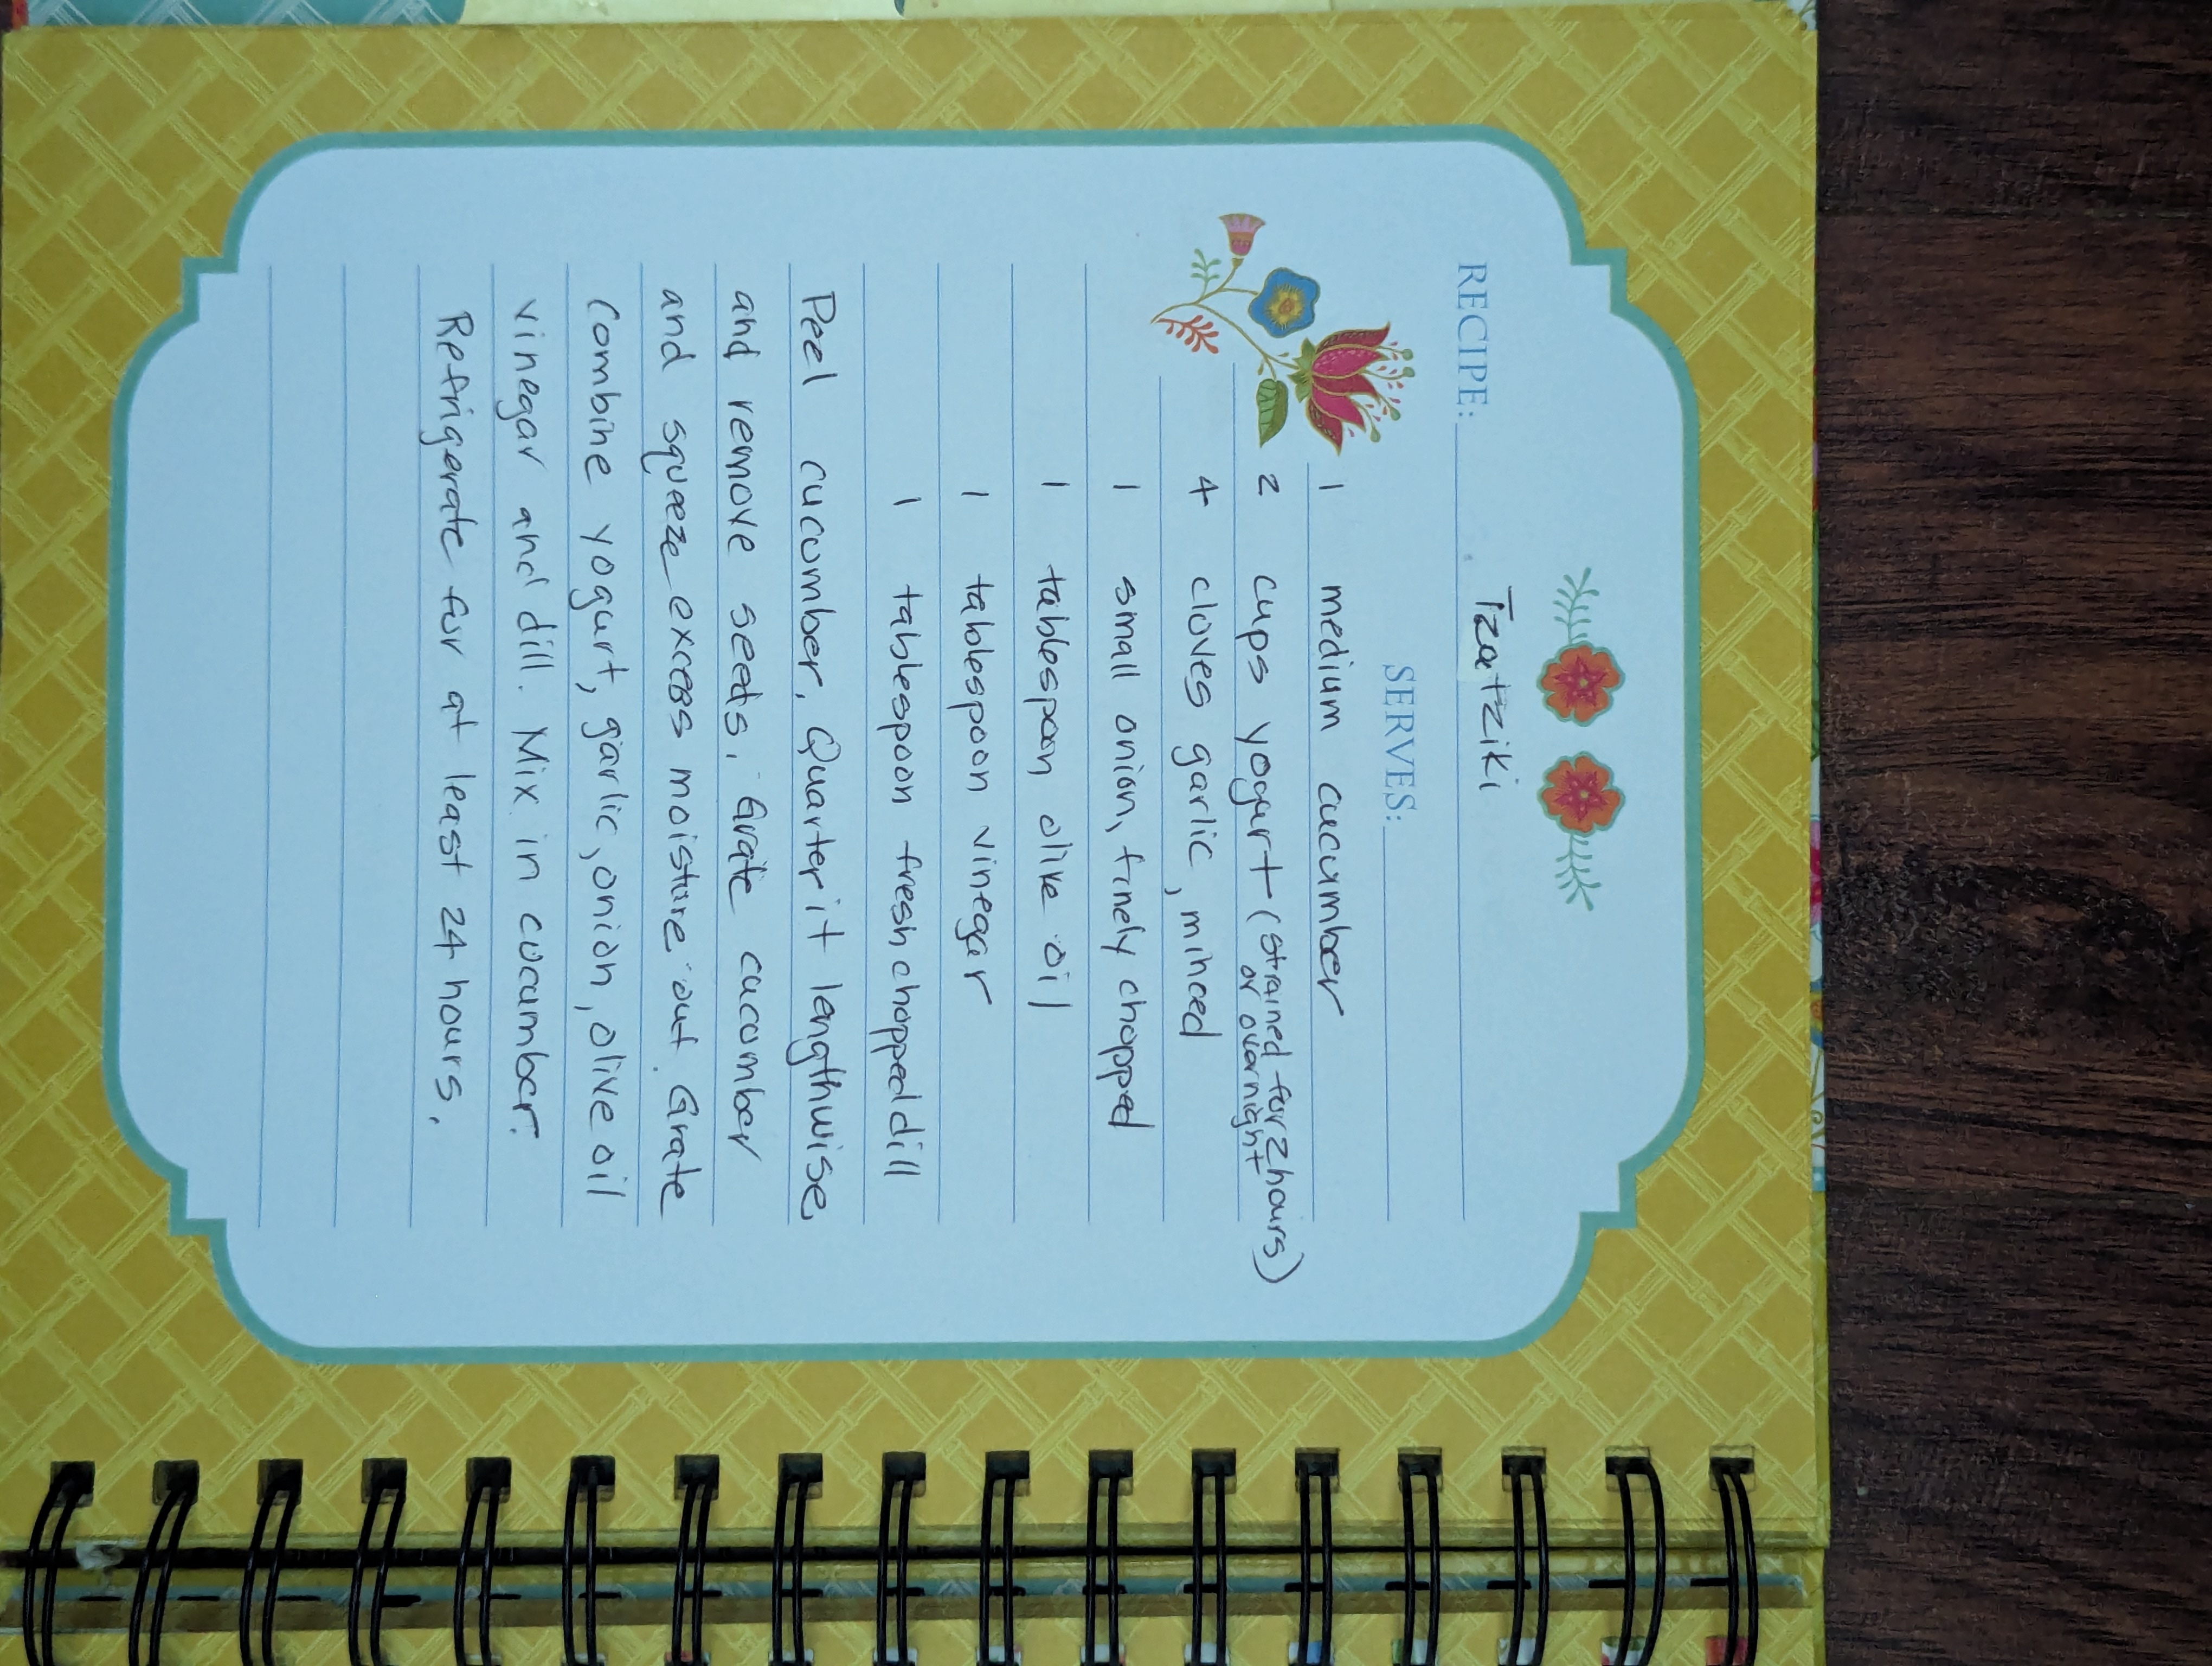 RECIPE: Tzatziki
SERVES:
1 medium cucumber
2 cups yogurt (strained for 2 hours)
or overnight
4 cloves garlic, minced
1 small onion, finely chopped
1 tablespoon olive oil
1 tablespoon vinegar
1 tablespoon fresh chopped dill
Peel cucumber, Quarter it lengthwise
and remove seeds. Grate cucumber
and squeeze excess moisture out. Grate
Combine yogurt, garlic, onion, olive oil
vinegar and dill. Mix in cucumber.
Refrigerate for at least 24 hours.